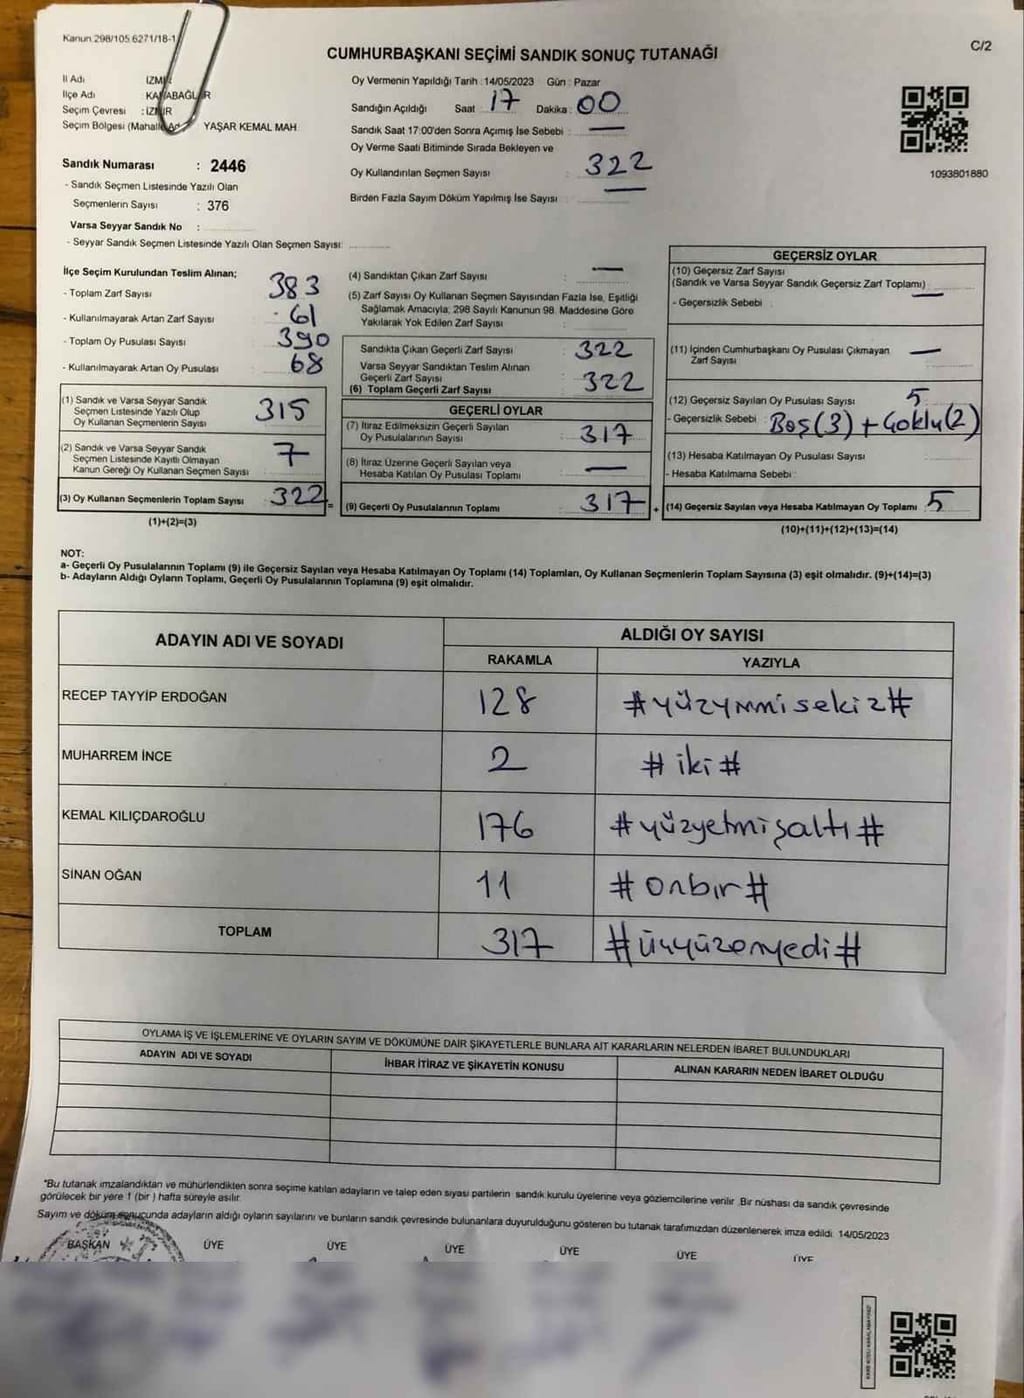 Kanun 298/105 6271/18-1
C/2
CUMHURBAŞKANI SEÇİMİ SANDIK SONUÇ TUTANAĞI
İl Adı
İlçe Adı
Seçim Çevresi :
Seçim Bölgesi YAŞAR KEMAL MAH
Sandık Numarası : 2446
- Sandık Seçmen Listesinde Yazılı Olan
Seçmenlerin Sayısı : 376
Varsa Seyyar Sandık No :
- Seyyar Sandık Seçmen Listesinde Yazılı Olan Seçmen Sayısı:
Oy Vermenin Yapıldığı Tarih :14/05/2023 Gün : Pazar
Sandığın Açıldığı Saat : 17 Dakika : 00
Sandık Saat 17:00'den Sonra Açılmış İse Sebebi : —
Oy Verme Saati Bitiminde Sırada Bekleyen ve
Oy Kullandırılan Seçmen Sayısı : 322
Birden Fazla Sayım Döküm Yapılmış İse Sayısı : —
1093801880
İlçe Seçim Kurulundan Teslim Alınan;
- Toplam Zarf Sayısı : 383
- Kullanılmayarak Artan Zarf Sayısı : 61
- Toplam Oy Pusulası Sayısı : 390
- Kullanılmayarak Artan Oy Pusulası : 68
(1) Sandık ve Varsa Seyyar Sandık
Seçmen Listesinde Yazılı Olup
Oy Kullanan Seçmenlerin Sayısı : 315
(2) Sandık ve Varsa Seyyar Sandık
Seçmen Listesinde Kayıtlı Olmayan
Kanun Gereği Oy Kullanan Seçmen Sayısı : 7
(3) Oy Kullanan Seçmenlerin Toplam Sayısı : 322
(1)+(2)=(3)
=
(4) Sandıktan Çıkan Zarf Sayısı : —
(5) Zarf Sayısı Oy Kullanan Seçmen Sayısından Fazla İse, Eşitliği
Sağlamak Amacıyla, 298 Sayılı Kanunun 98. Maddesine Göre
Yakılarak Yok Edilen Zarf Sayısı :
Sandıkta Çıkan Geçerli Zarf Sayısı : 322
Varsa Seyyar Sandıktan Teslim Alınan
Geçerli Zarf Sayısı :
(6) Toplam Geçerli Zarf Sayısı : 322
GEÇERLİ OYLAR
(7) İtiraz Edilmeksizin Geçerli Sayılan
Oy Pusulalarının Sayısı : 317
(8) İtiraz Üzerine Geçerli Sayılan veya
Hesaba Katılan Oy Pusulası Toplamı : —
(9) Geçerli Oy Pusulalarının Toplamı : 317
+
GEÇERSİZ OYLAR
(10) Geçersiz Zarf Sayısı
(Sandık ve Varsa Seyyar Sandık Geçersiz Zarf Toplamı) : —
- Geçersizlik Sebebi :
(11) İçinden Cumhurbaşkanı Oy Pusulası Çıkmayan
Zarf Sayısı : —
(12) Geçersiz Sayılan Oy Pusulası Sayısı : 5
- Geçersizlik Sebebi : Boş(3)+Çoklu(2)
(13) Hesaba Katılmayan Oy Pusulası Sayısı :
- Hesaba Katılmama Sebebi :
(14) Geçersiz Sayılan veya Hesaba Katılmayan Oy Toplamı : 5
(10)+(11)+(12)+(13)=(14)
NOT:
a- Geçerli Oy Pusulalarının Toplamı (9) ile Geçersiz Sayılan veya Hesaba Katılmayan Oy Toplamı (14) Toplamları, Oy Kullanan Seçmenlerin Toplam Sayısına (3) eşit olmalıdır. (9)+(14)=(3)
b- Adayların Aldığı Oyların Toplamı, Geçerli Oy Pusulalarının Toplamına (9) eşit olmalıdır.
ADAYIN ADI VE SOYADI
ALDIĞI OY SAYISI
RAKAMLA YAZIYLA
RECEP TAYYİP ERDOĞAN 128 #yüzyirmisekiz#
MUHARREM İNCE 2 #iki#
KEMAL KILIÇDAROĞLU 176 #yüzyetmişaltı#
SİNAN OĞAN 11 #onbir#
TOPLAM 317 #üçyüzonyedi#
OYLAMA İŞ VE İŞLEMLERİNE VE OYLARIN SAYIM VE DÖKÜMÜNE DAİR ŞİKAYETLERLE BUNLARA AİT KARARLARIN NELERDEN İBARET BULUNDUKLARI
ADAYIN ADI VE SOYADI İHBAR İTİRAZ VE ŞİKAYETİN KONUSU ALINAN KARARIN NEDEN İBARET OLDUĞU
"Bu tutanak imzalandıktan ve mühürlendikten sonra seçime katılan adayların ve talep eden siyasi partilerin sandık kurulu üyelerine veya gözlemcilerine verilir. Bir nüshası da sandık çevresinde
görülecek bir yere 1 (bir ) hafta süreyle asılır.
Sayım ve döküm sonucunda adayların aldığı oyların sayılarını ve bunların sandık çevresinde bulunanlara duyurulduğunu gösteren bu tutanak tarafımızdan düzenlenerek imza edildi. 14/05/2023
BAŞKAN ÜYE ÜYE ÜYE ÜYE ÜYE ÜYE